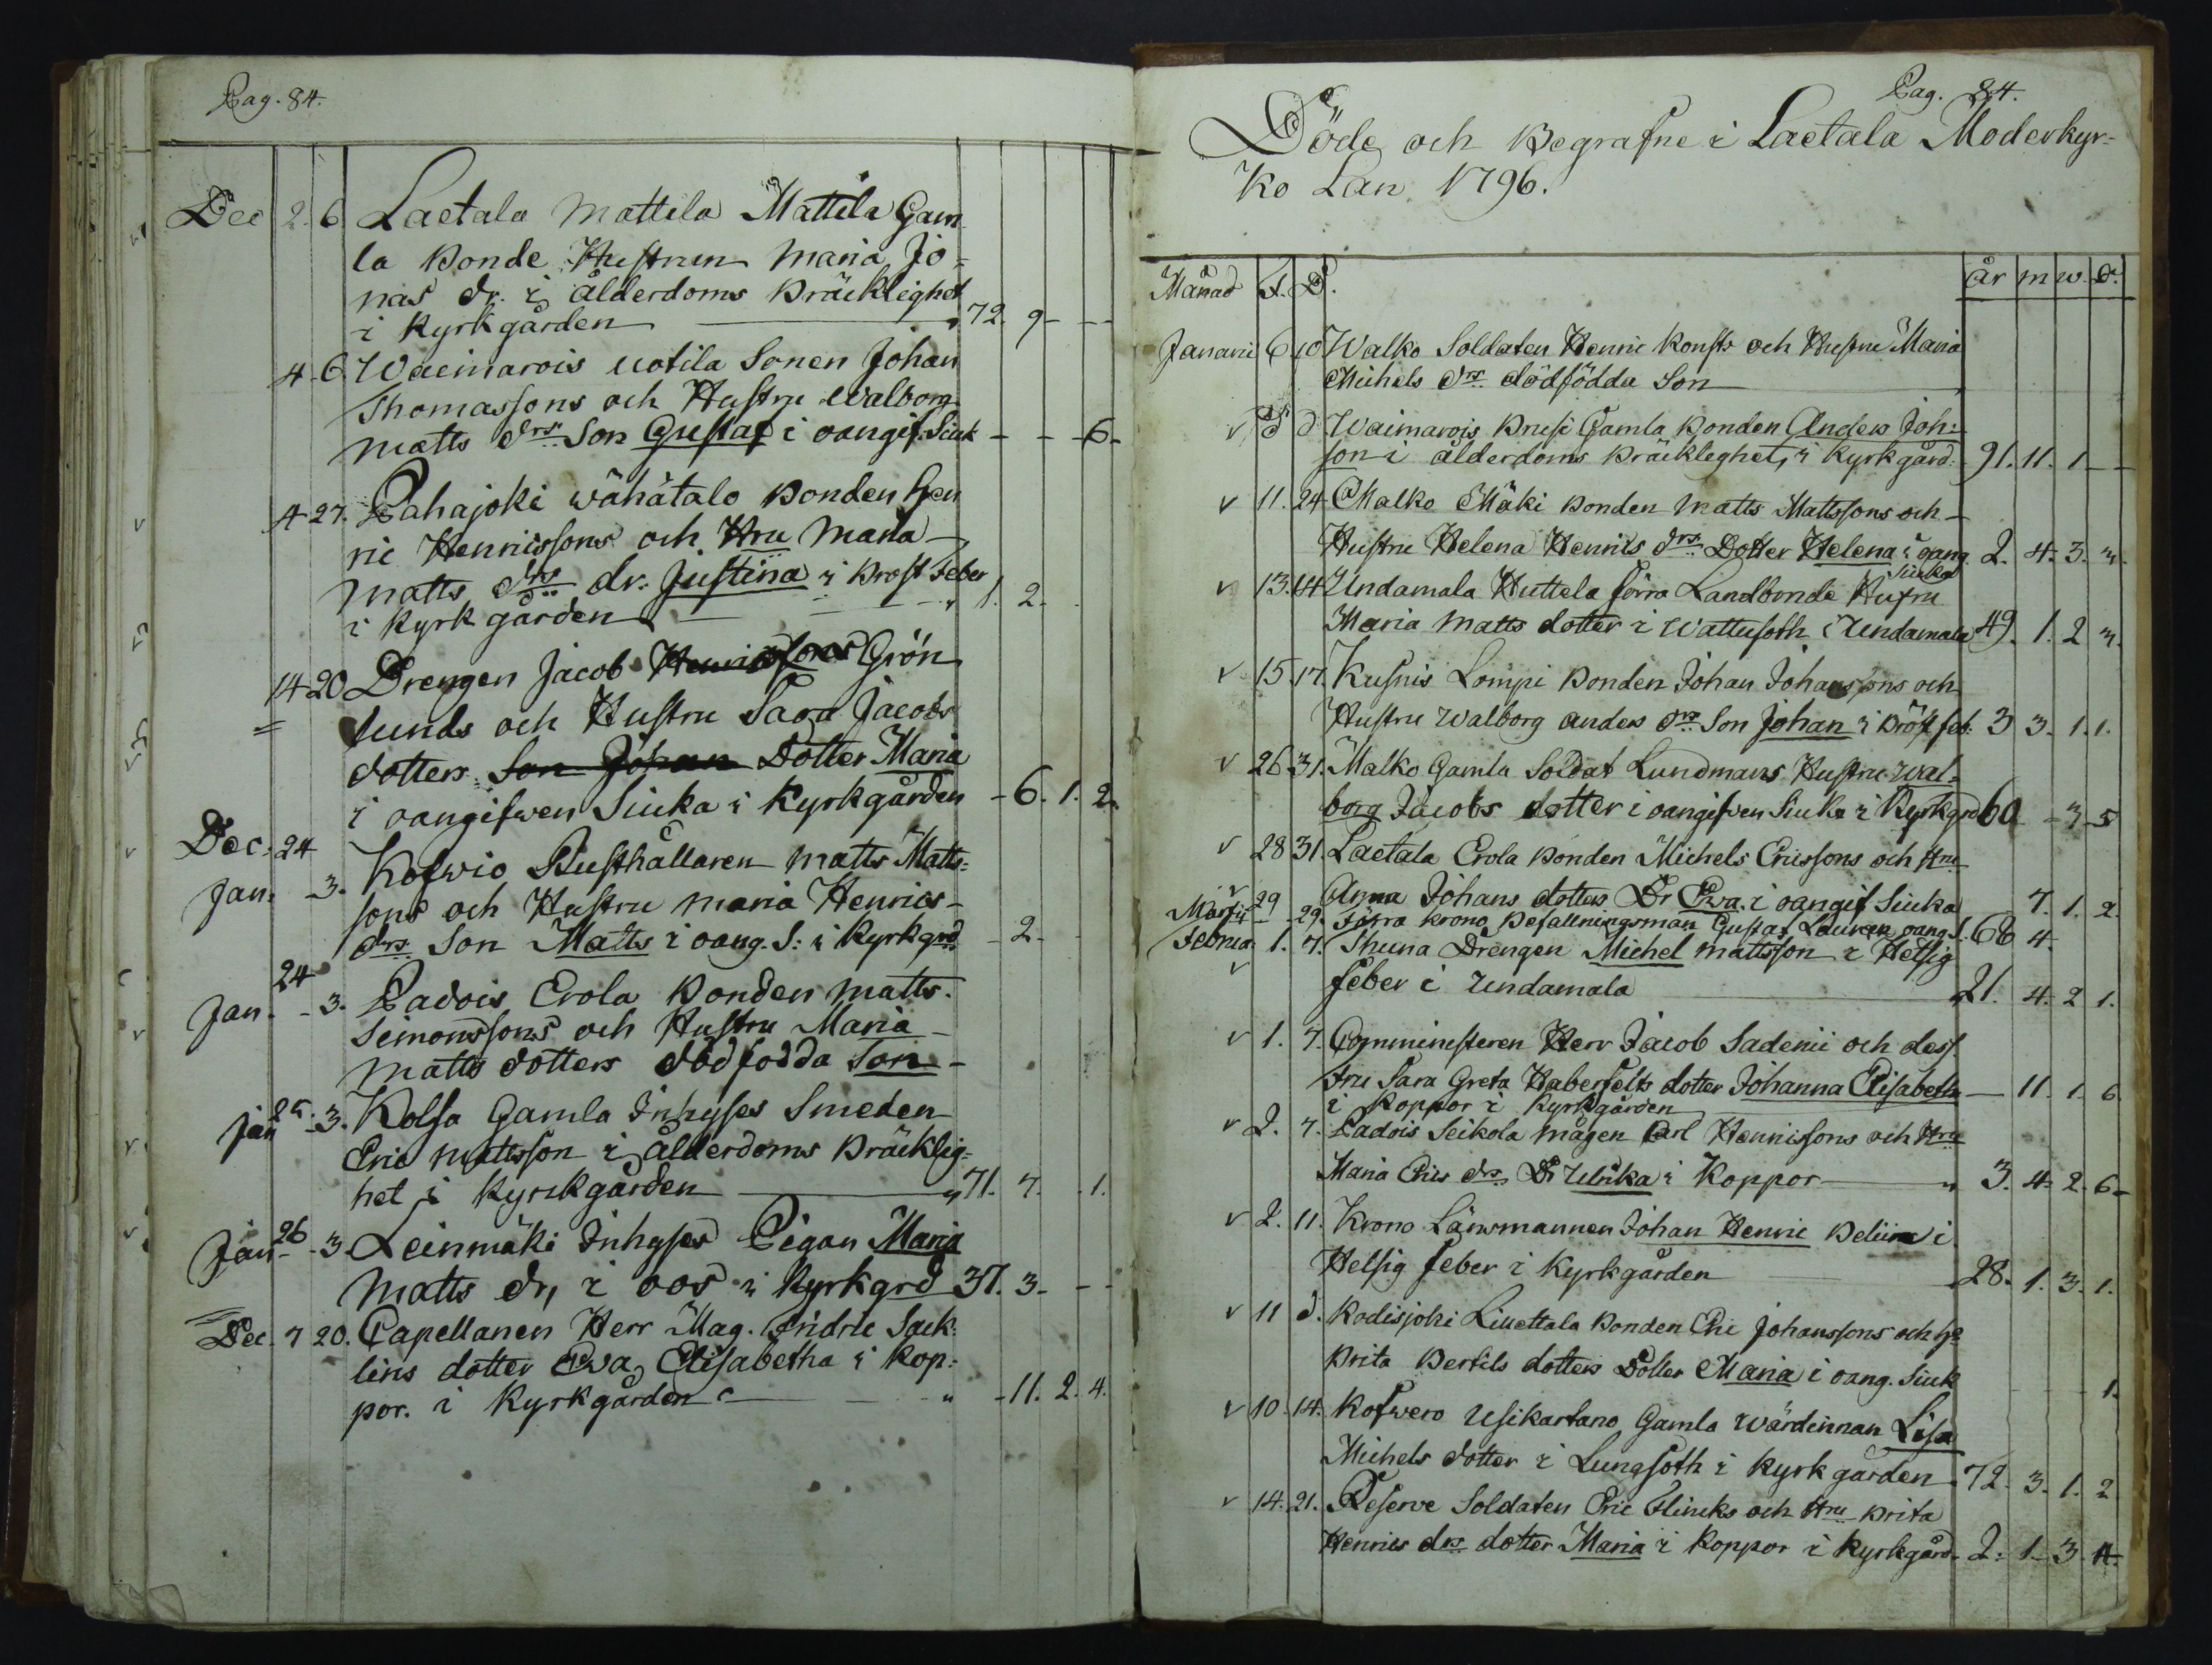 Pag. 84.
Dec 2. 6 Laetala Mattila Mattila Gam
la Bonde Hustrun Maria Jo=
nas dr. i ålderdoms Bräcklighet
i Kyrkgården 72. 9 - -
4. 6. Waimarois uotila Sonen Johan
Thomassons och Hustru Walborg
Matts drs. Son Gustaf i oangif. Siuk - - 6 -
4 27. Pahajoki wähätalo Bonden Hen
ric Henricssons och Hru Maria
Matts drs dr. Justina i Brost Feber
i Kyrkgården 1. 2.
14 20 Drengen Jacob Henricssons Grön
lunds och Hustru Sara Jacobs
dotters Son Johan Dotter Maria
i oangifwen Siuka i Kyrkgården - 6. 1. 2.
Dec. 24
Jan. 3. Kofwio Rusthållaren Matts Matts=
sons och Hustru Maria Henrics-
drs. Son Matts i oang. S: i Kyrkgrd - 2.
24
Jan. - 3. Padois Erola Bonden Matts
Simonssons och Hustru Maria
Matts dotters dödfödda Son
25.
Jan - 3. Kolsa Gamla Inhyses Smeden
Eric Mattsson i ålderdoms Bräcklig=
het i Kyrckgården 71. 7. - 1.
26
Jan - - 3 Leinmäki Inhyses Pigan Maria
Matts dr, i oos i Kyrkgrd 37. 3 - - -
Dec. 7 20. Capellanen Herr Mag. Fridric Sack=
lins dotter Ewa Elisabetha i Kop=
por. i Kyrkgården - 11. 2. 4.
Pag. 84.
Döde och Begrafne i Laetala Moderkyr=
ko Lan 1796.
Månad F. D. år m w. d.
Januarii 6 10 Walko Soldaten Henric Konsts och Hustru Maria
Michels drs. dödfödda Son
v 8 d Waimarois Krusi Gamla Bonden Anders Joh=
son i ålderdoms Bräcklighet, i Kyrkgård. 91. 11. 1 -
v 11. 24 Malko Mäki Bonden Matts Mattssons och
Hustru Helena Henrics drs. Dotter Helena i oang. 2. 4. 3. 3.
Siuka
v 13. 14 Undamala Huttela förra Landbonde Hustru
Maria Matts dotter i Wattusoth i Undamala 49. 1. 2 3.
v 15. 17. Kusnis Lompi Bonden Johan Johanssons och
Hustru Walborg Anders drs Son Johan i Bröst feb: 3 3. 1. 1.
v 26 31. Malko Gamla Soldat Lundmans Hustru Wal=
borg Jacobs dotter i oangifven Siuka i Kyrkgrd 60 - 3 5
v 28 31. Laetala Erola Bonden Michels Ericssons och Hru
Anna Johans dotters Dr Ewa. i oangif Siuka - 7. 1. 2.
v Martii 29 29. Förra Krono Befallningsman Gustaf Lauren oang S. 66 4.
Februa. 1. 7. Thuna Drengen Michel Mattsson i Hetsig
v feber i Undamala 21. 4. 2 1.
v 1. 7. Comministeren Herr Jacob Sadenii och dess
Fru Sara Greta Haberfelts dotter Johanna Elisabeth - 11. 1. 6
i Koppor i Kyrkgården
v 2. 7. Padois Seikola mågen Carl Henricssons och Hru
Maria Erics drs. Dr Ulrika i Koppor 3. 4. 2. 6 -
v 2. 11. Krono Länsmannen Johan Henric Beliin i
Hetsig feber i Kyrkgården 28. 1. 3. 1.
v 11 d. Kodisjoki Liuettala Bonden Eric Johanssons och
Brita Bertils dotters Dotter Maria i oang. Siuk 1.
v 10. 14. Kofwero Usikartano Gamla Wärdinnan Lisa
Michels dotter i Lungsoth i Kyrkgården 72. 3. 1. 2
v 14. 21. Reserve Soldaten Eric Flincks och Hru Brita
Henrics drs. dotter Maria i Koppor i Kyrkgård. 2. 1. 3. 4.